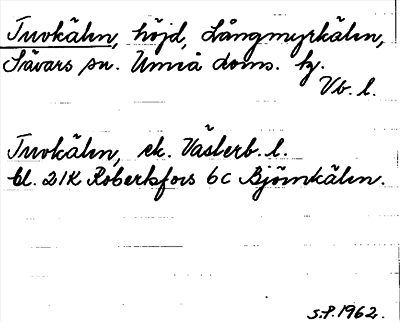 Tuvkälen, höjd, Långmyrkälen,
Sävars sn. Umeå doms. hg.
Vb. l.
Tuvkälen, ek. Västerb. l.
bl. 21K Robertsfors 6c Björnkälen.
S.P. 1962.